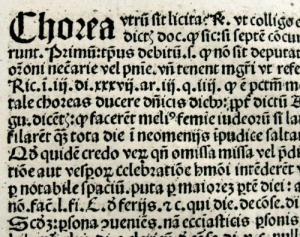 Chorea vtrū sit licita? R̃. vt colligo
dictꝭ doc. ꝙ sic: si septē cōcu
runt. Primū: tp̄us debitū. s. ꝙ nō sit deputa
orōni necārie vel pn̄ie. vn̄ tenent mgr̄i vt refe
Ric. i. iij. di. xxxvij. ar. iij. q. iij. ꝙ ē pctm̄
tale choreas ducere dn̄icis dieb⁹: ꝓpt̄ dictū
gu. dicētꝭ: ꝙ facerēt meli⁹ femīe iudeorū si la
filarēt ꝙ̄ tota die ī neomenijs īpudice salta
Qd̄ quidē credo veꝝ qn̄ omissa missa vel
tiōe aut vesꝑoꝝ celebratiōe hmōi intēderēt
ꝑ notabile spaciū. puta ꝑ maiorez ptē diei:
nō. fac̄. l. fi. C. d̄ ferijs. ⁊ c. qui die. de cōse. di
Scd̄ꝫ: ꝑsona ꝯueniēs. nā ecc̄iasticis ꝑsonis